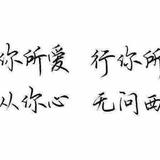 你所爱 行你所
从你心 无问西